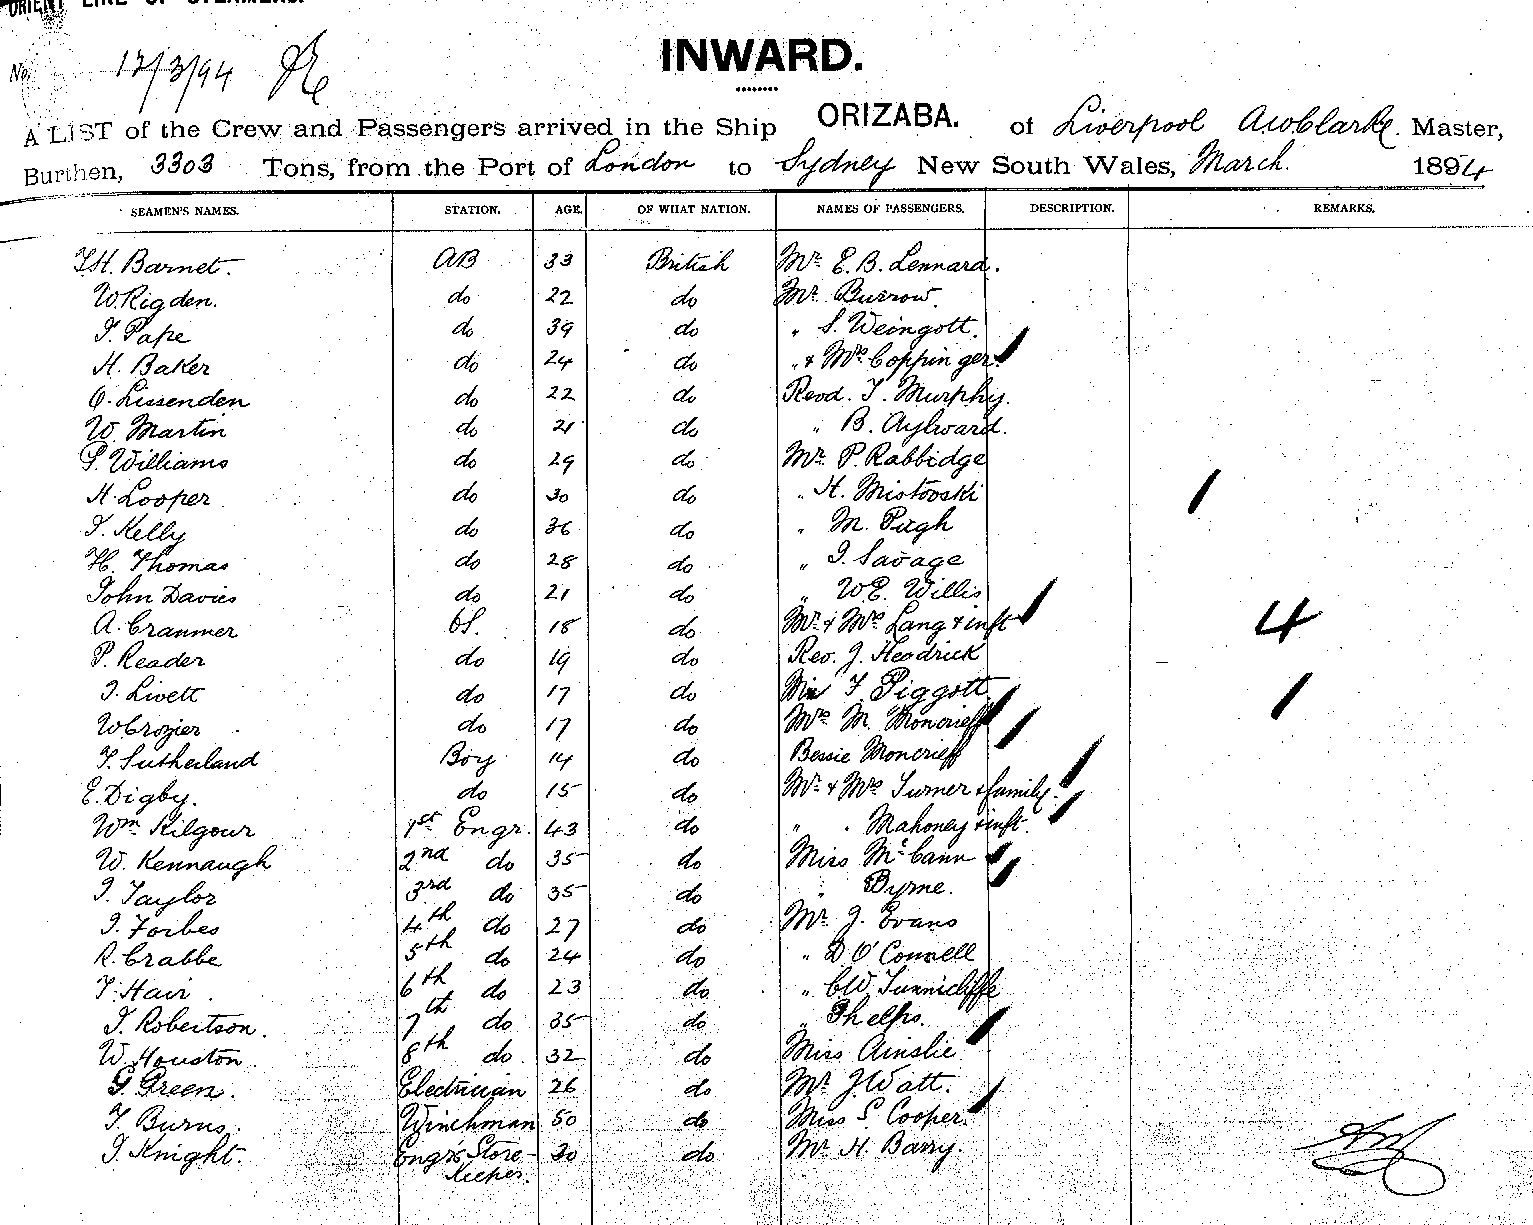 ORIENT LINE OF STEAMERS.
INWARD.
No. 12/3/94
A LIST of the Crew and Passengers arrived in the Ship ORIZABA. of Liverpool AWClarke. Master,
Burthen, 3303 Tons, from the Port of London to Sydney New South Wales, March. 1894
SEAMEN'S NAMES. STATION. AGE. OF WHAT NATION. NAMES OF PASSENGERS. DESCRIPTION. REMARKS.
Barnet. AB 33 British Mr. E. B. Lennard.
W. Rigden. do 22 do Mr. Burrow.
T. Pape do 39 do " S. Weingott.
H. Baker do 24 do " & Mrs. Coppinger.
O. Lissenden do 22 do Revd. T. Murphy.
W. Martin do 21 do " B. Aylward.
P. Williams do 29 do Mr. P. Rabbidge
H. Looper do 30 do " H. Mistovski
T. Kelly do 36 do " M. Pugh
H. Thomas do 28 do " J. Savage
John Davies do 21 do " W.E. Willis
A. Cranmer OS. 18 do Mr. & Mrs. Lang & inft 4
P. Reader do 19 do Rev. J. Headrick
J. Livett do 17 do F. Piggott
W Crozier do 17 do Mrs. M. Moncrieff
T. Sutherland Boy 14 do Bessie Moncrieff
E. Digby. do 15 do Mr. & Mrs Turner & family.
Wm. Kilgour 1st Engr. 43 do " " Mahoney & inft.
W. Kennaugh 2nd do 35 do Miss McCann
J. Taylor 3rd do 35 do " Byrne.
J. Forbes 4th do 27 do Mr. J. Evans
R. Crabbe 5th do 24 do " D O'Connell
T. Hair. 6th do 23 do " CW. Tunnicliffe
J. Robertson. 7th do 35 do " Phelps.
W. Houston. 8th do 32 do Miss Ainslie
G. Green. Electrician 26 do Mr. J. Watt.
T. Burns. Winchman 50 do Miss S. Cooper.
J. Knight. Engr's Store- 30 do Mr. H. Barry.
Keeper.